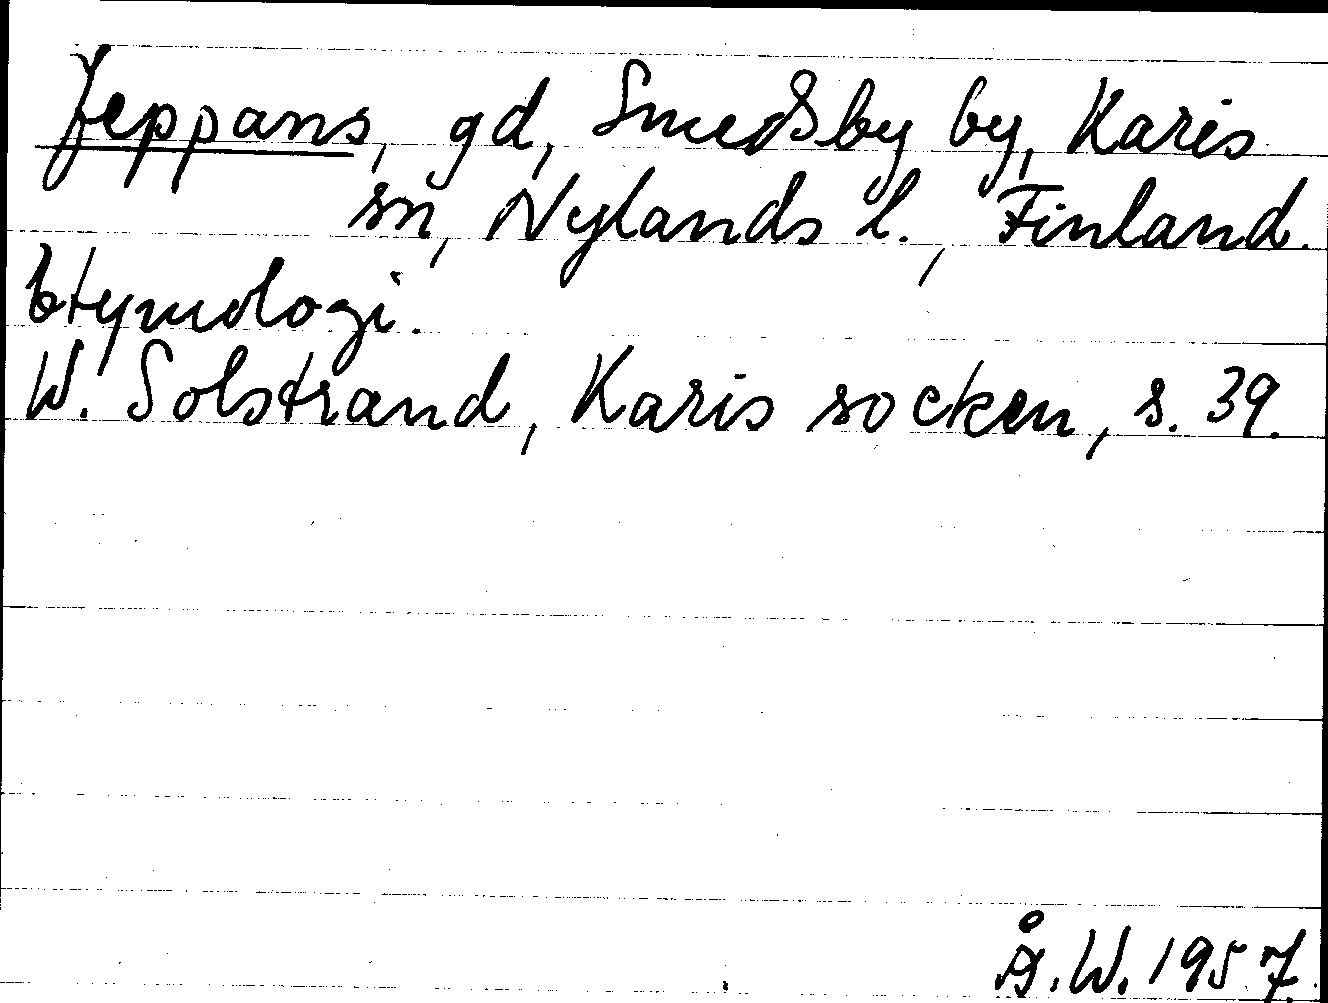 Jeppans, gd, Smedsby by, Karis
sn, Nylands l., Finland.
Etymologi.
W. Solstrand, Karis socken, s. 39.
Å.W. 1957.